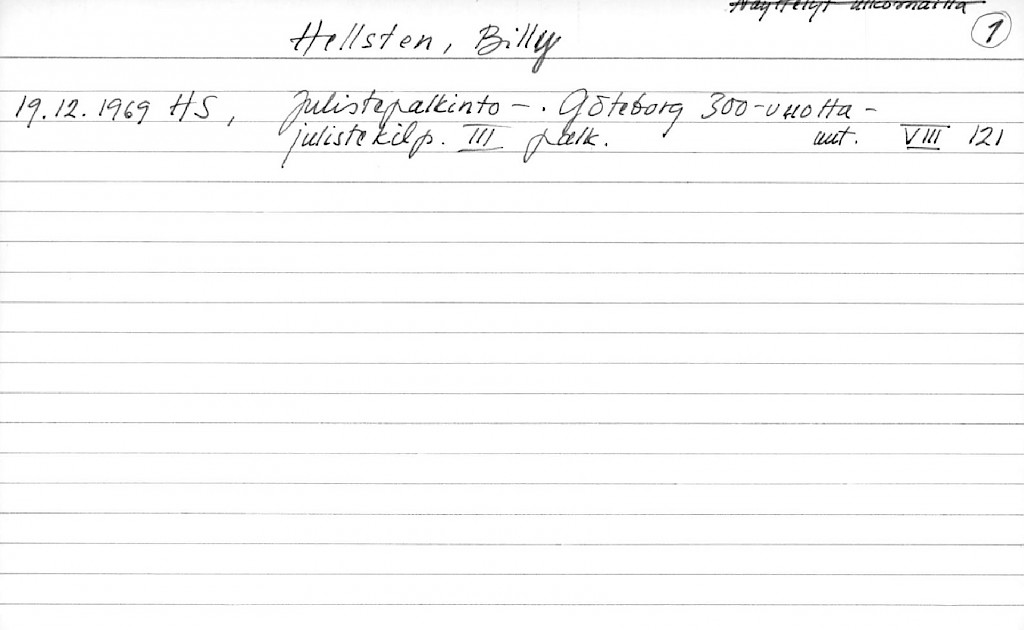 Näyttelyt ulkomailla
1
Hellsten, Billy
19.12.1969 HS, Julistepalkinto -. Göteborg 300-vuotta-
julistekilp. III palk. uut. VIII 121